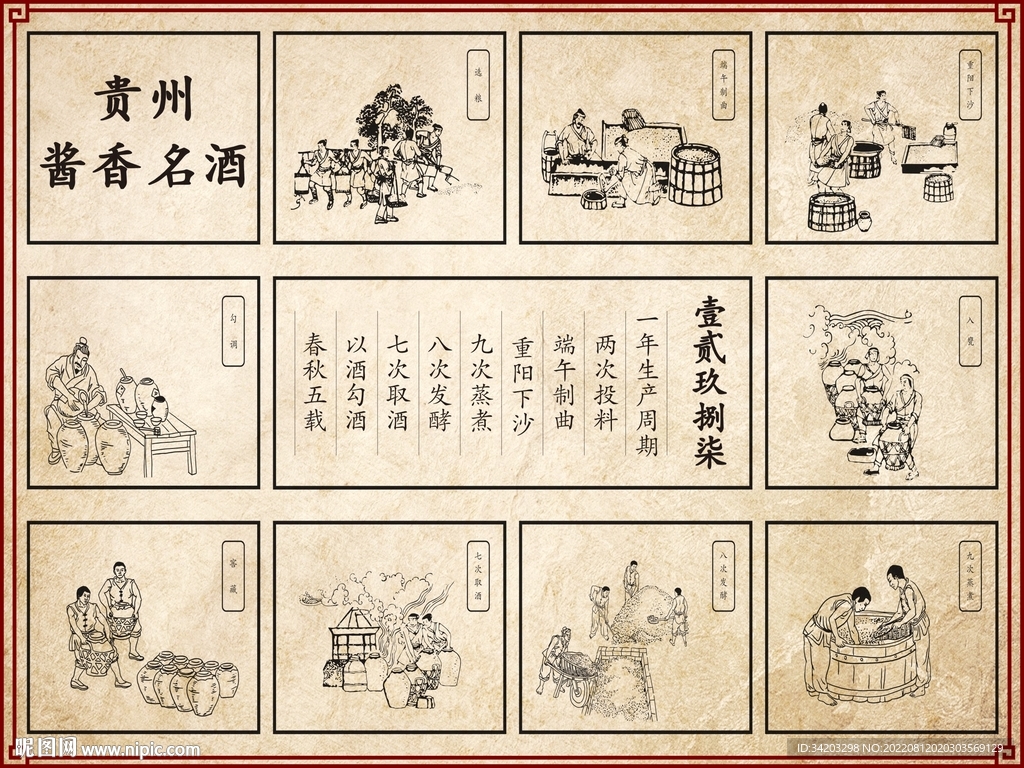 贵州
酱香名酒
选粮
端午制曲
重阳下沙
勾调
壹贰玖捌柒
一年生产周期
两次投料
端午制曲
重阳下沙
九次蒸煮
八次发酵
七次取酒
以酒勾酒
春秋五载
入甑
窖藏
七次取酒
八次发酵
九次蒸煮
昵图网 www.nipic.com
ID:34203298 NO:20220812020303569129